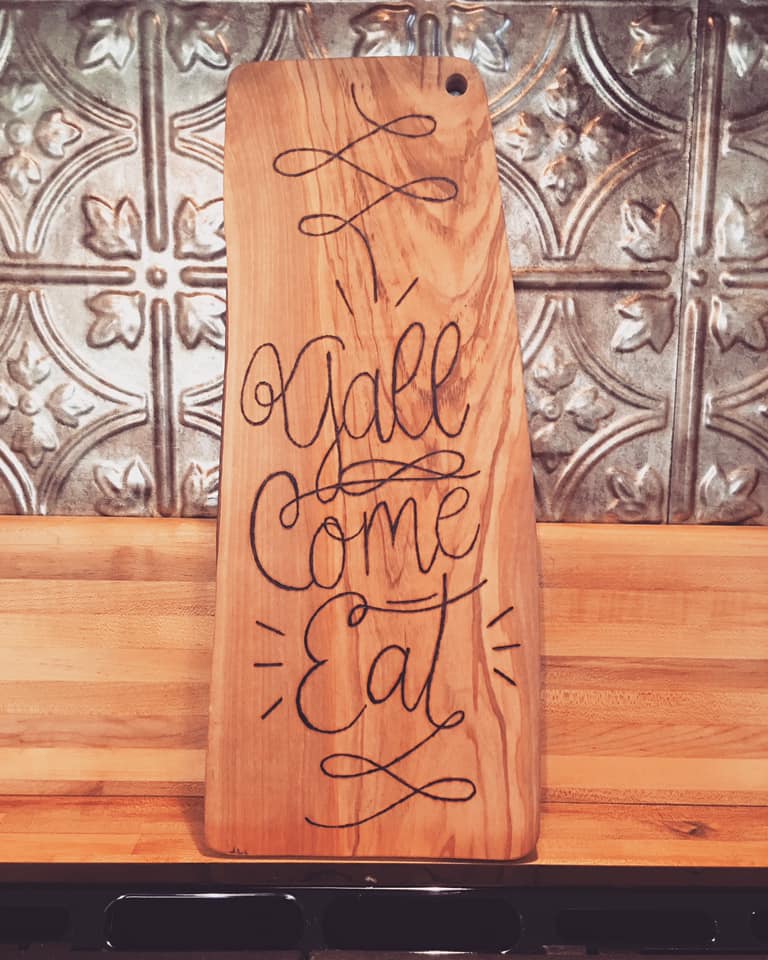 Y'all
Come
Eat